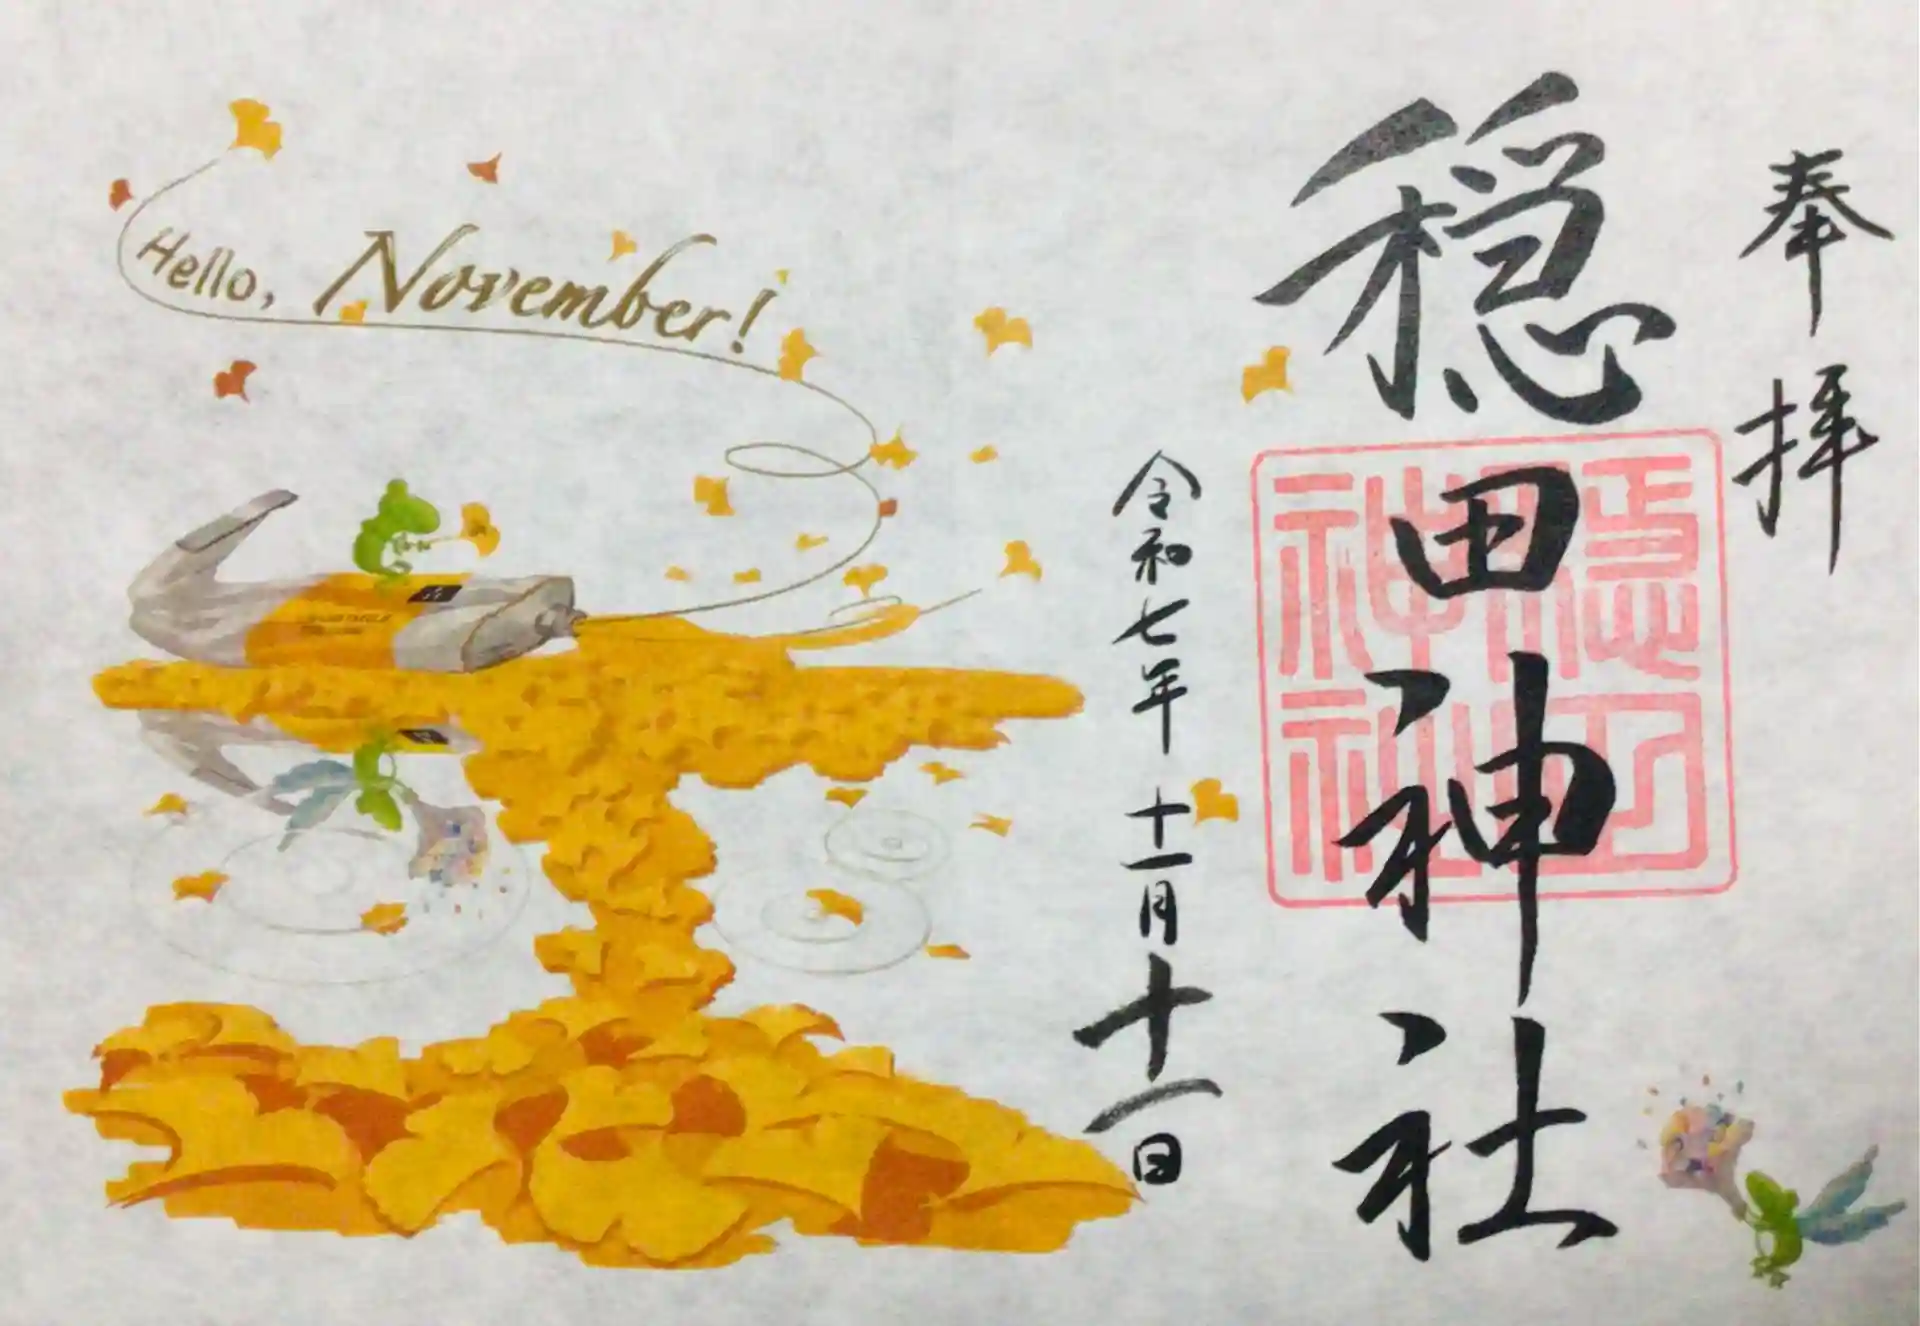 奉拝
穏田神社
穏田
神社
令和七年十一月十一日
Hello, November!